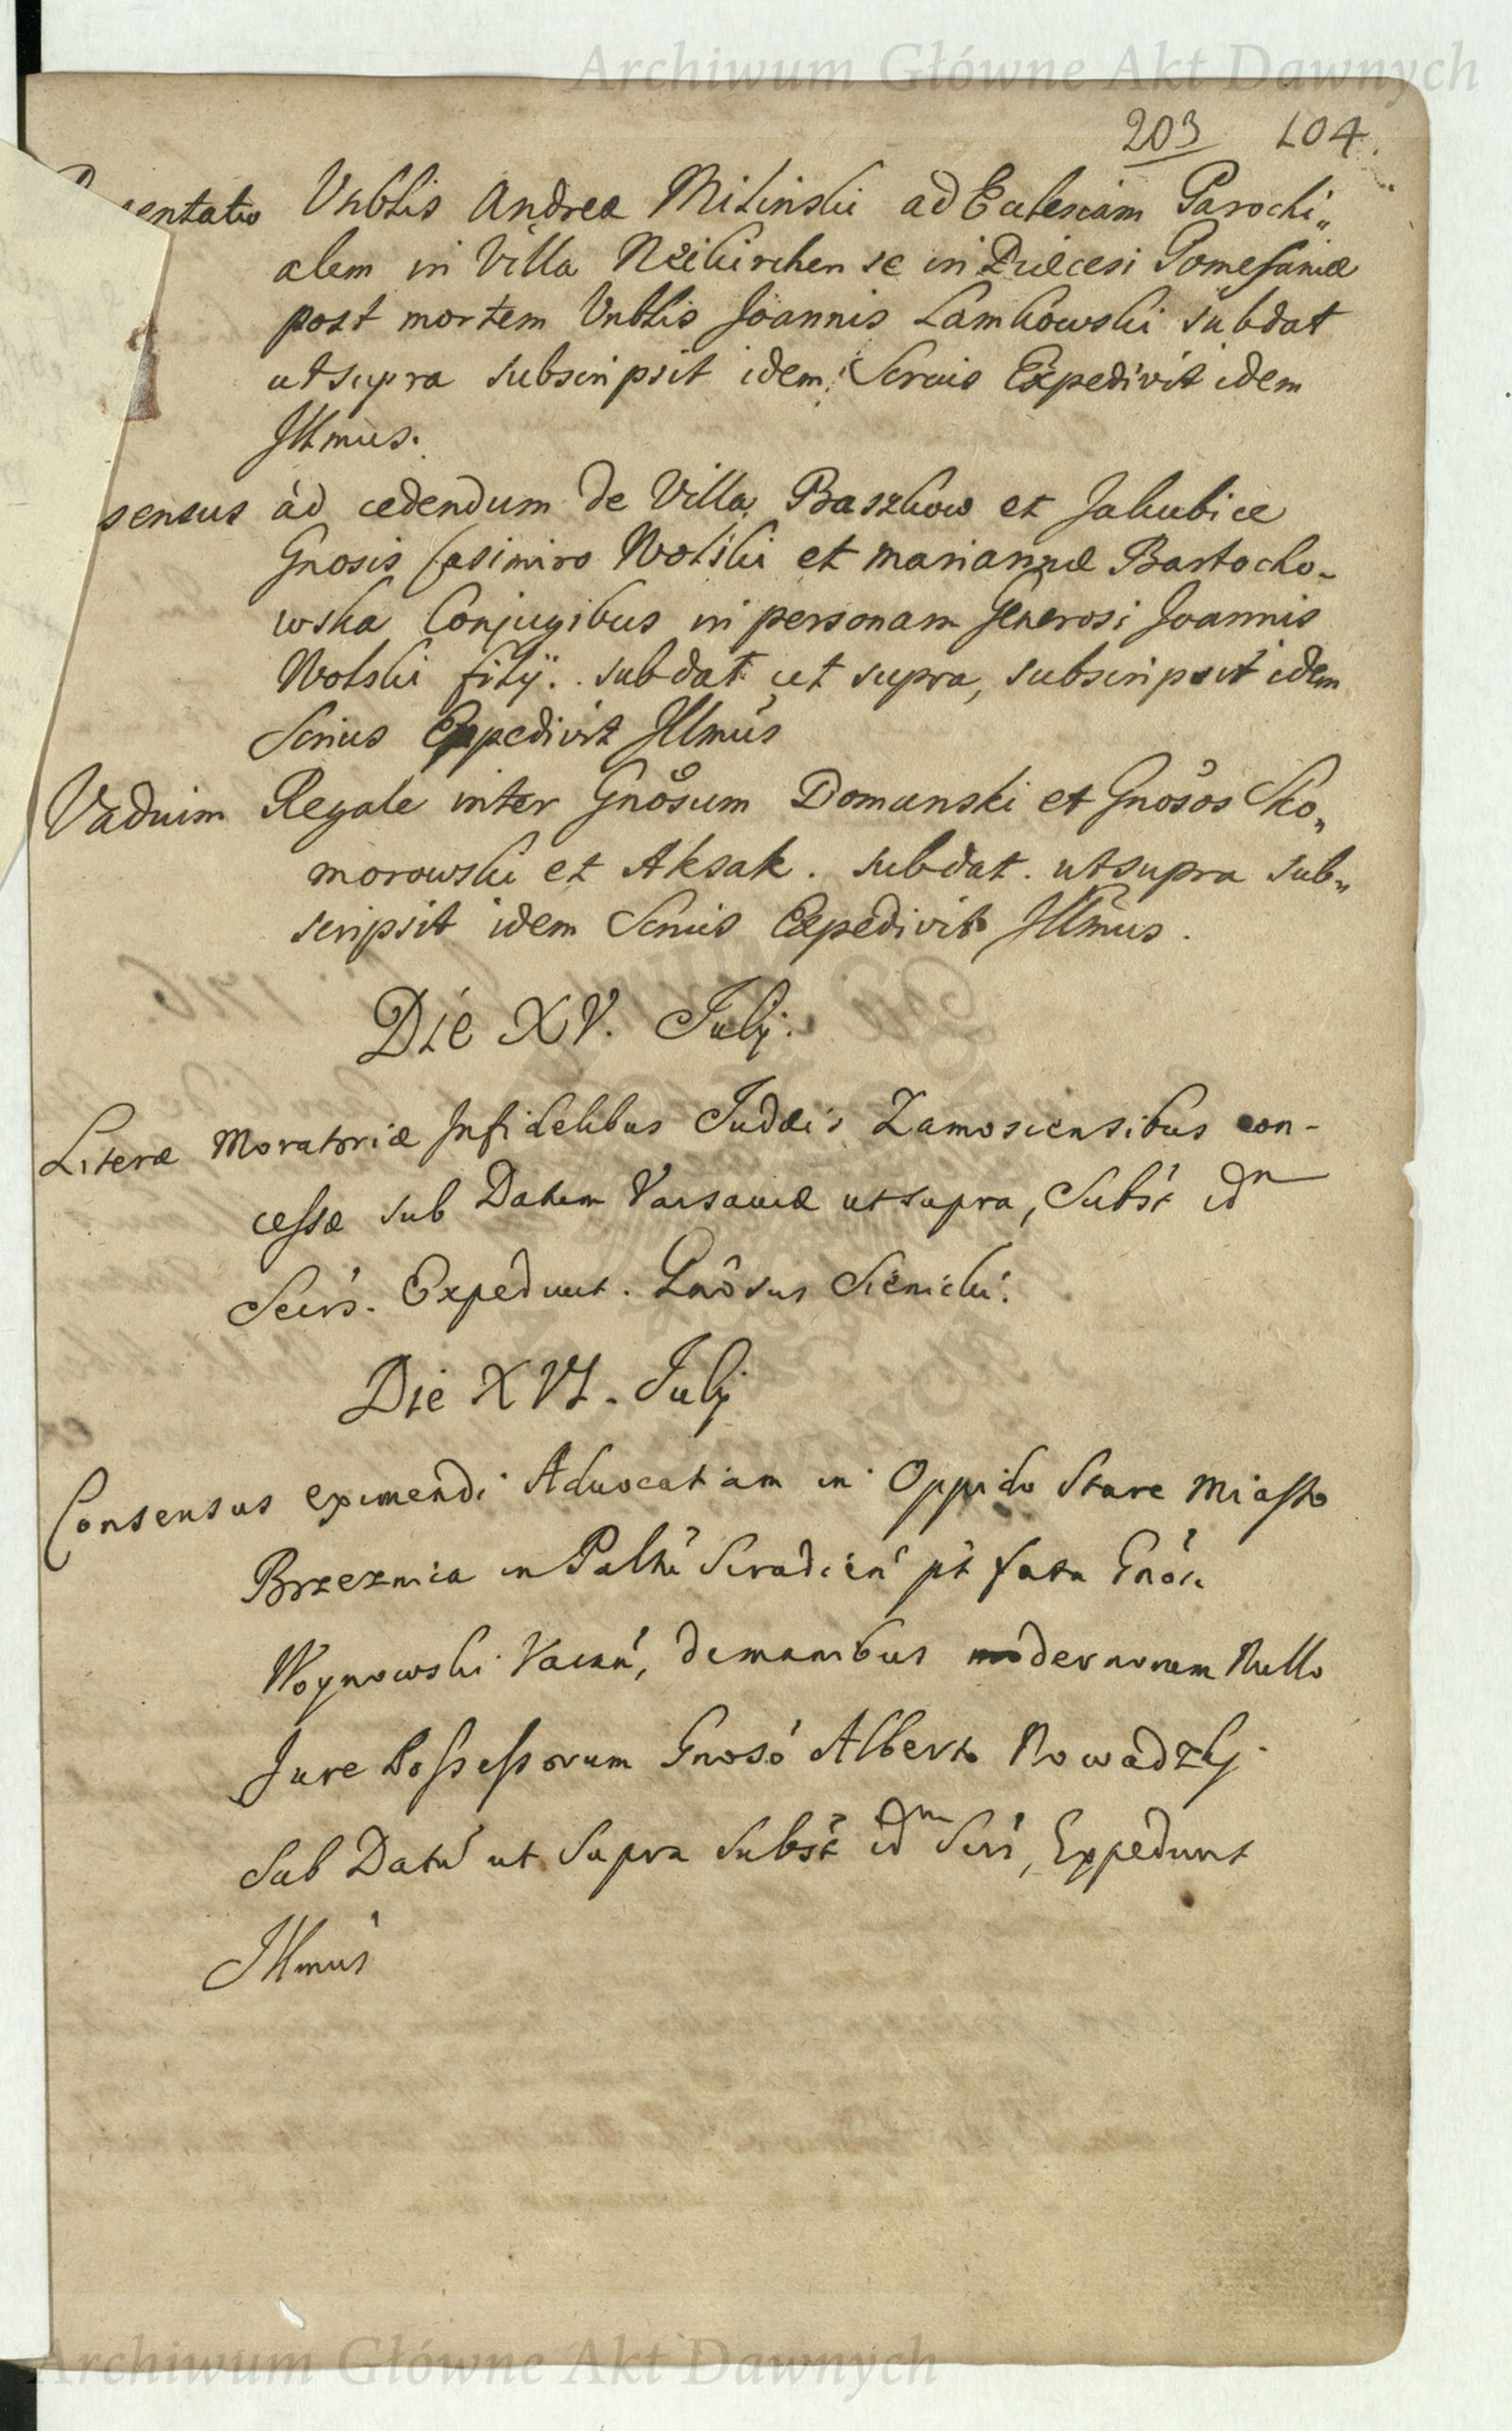 Archiwum Główne Akt Dawnych
203 104.
sentatio Vnblis Andrea Milinski ad Eclesiam Parochi„
alem in Villa Neikirchen se in Diœcesi Pomesaniæ
post mortem Vnblis Joannis Lamkowski subdat
ut supra subscripsit idem Scrius Expedivit idem
Illmus.
sensus ad cedendum de Villa Baszkow et Jakubice
Gnosis Casimiro Wolski et Mariannæ Bartocho-
wska Conjugibus in personam Generosi Joannis
Wolski filÿ. subdat ut supra, subscripsit idem
Scrius Expedivit Illmus
Vadium Regale inter Gnosum Domanski et Gnosos Sko„
morowski et Aksak. subdat. ut supra sub„
scripsit idem Scrius Expedivit Illmus.
Die XV. Julÿ.
Literæ Moratoriæ Infidelibus Judæis Zamosciensibus con-
cessæ sub Datum Varsaviæ ut supra, Subst idm
Scirs. Expedivit. Gnosus Sienicki.
Die XVI. Julÿ
Consensus eximendi Advocatiam in Oppido Stare Miasto
Brzeznica in Palnu Siradien pt fata Gnosi
Woynowski Vacan, de manibus modernorum Nullo
Jure Possessorum Gnoso Alberto Nowadzky
Sub Datu ut Supra Subst idm Scrs, Expedivit
Illmus
Archiwum Główne Akt Dawnych